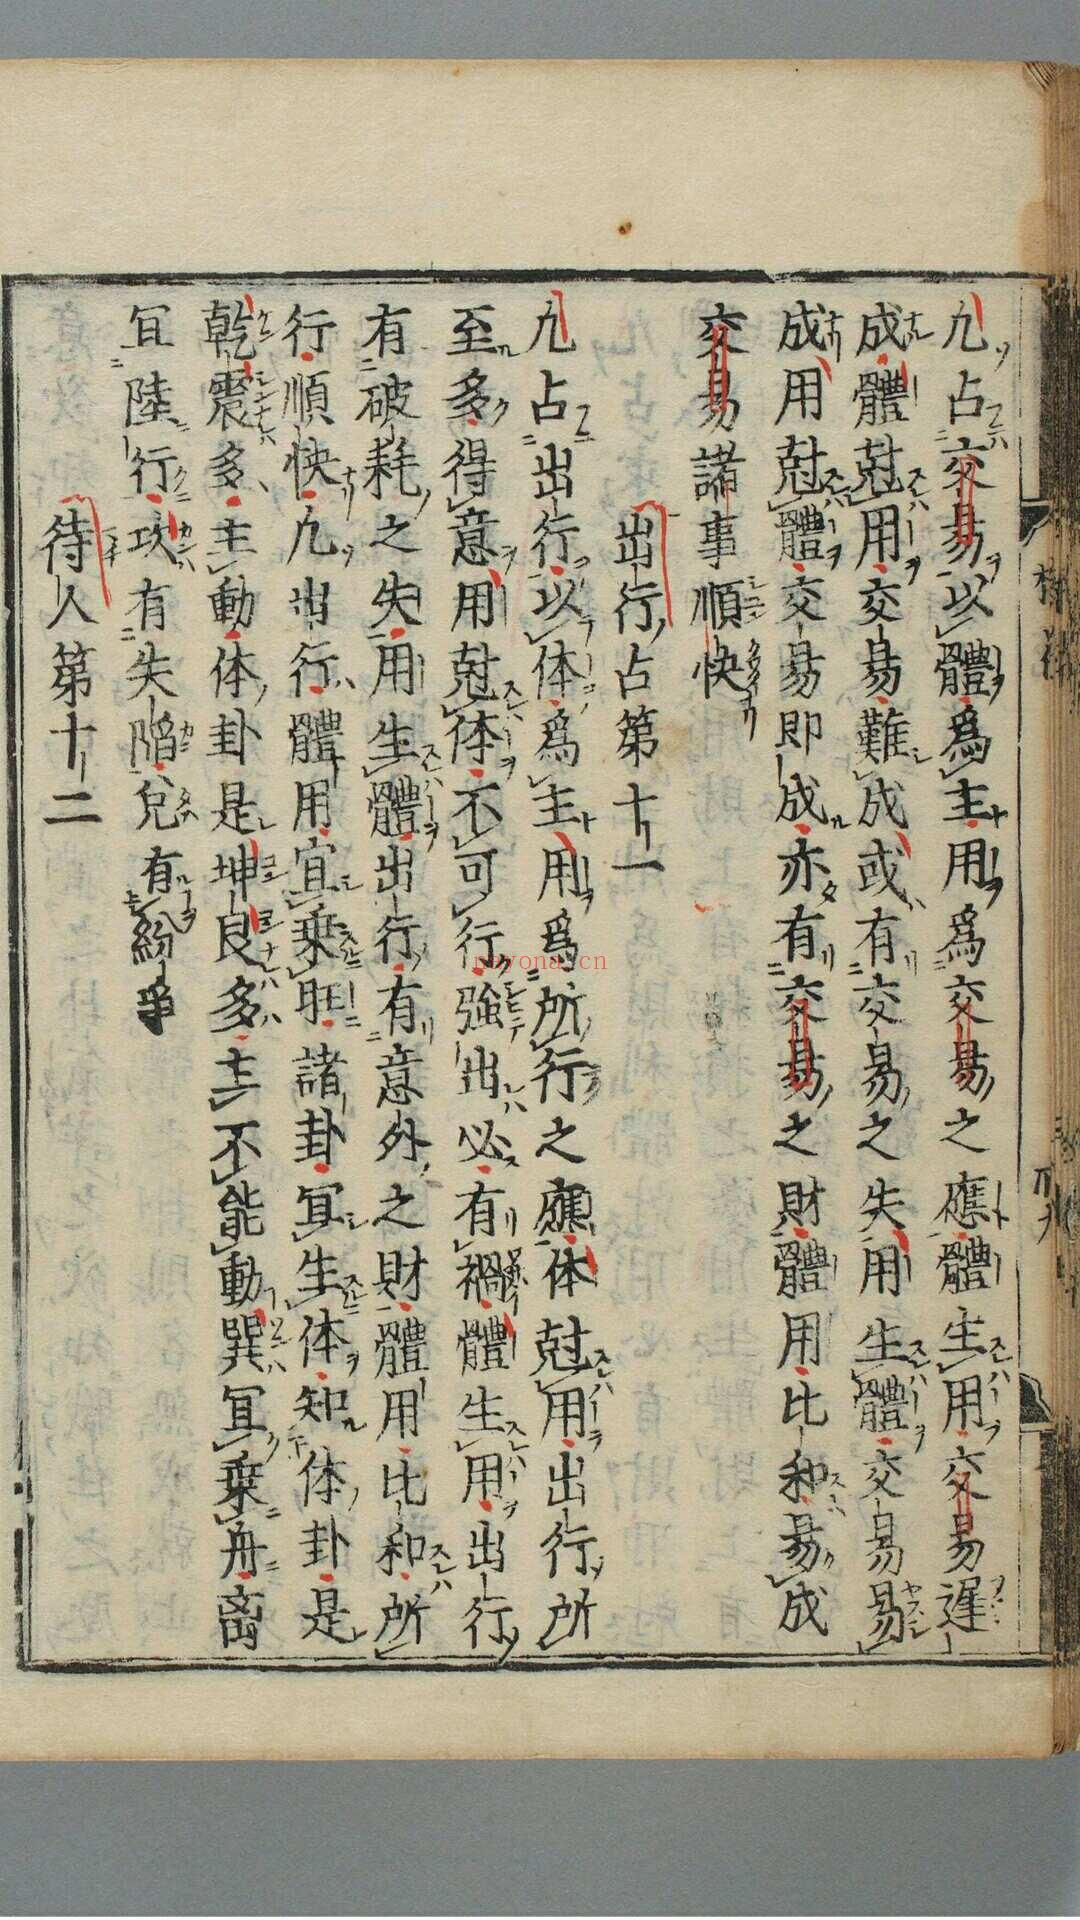 凢占交易以體爲主用爲交易之應體生用交易遅
成體尅用交易難成或有交易之失用生體交易易
成用尅體交易即成亦有交易之財體用比和易成
交易諸事順快
出行占第十一
凢占出行以体爲主用爲所行之應体尅用出行所
至多得意用尅体不可行強出必有禍體生用出行
有破耗之失用生體出行有意外之財體用比和所
行順快凢出行體用宜乗旺諸卦冝生体知体卦是
乾震多主動体卦是坤艮多主不能動巽冝乗舟离
冝陸行坎有失陥兌有紛争
待人第十二
nayona.cn